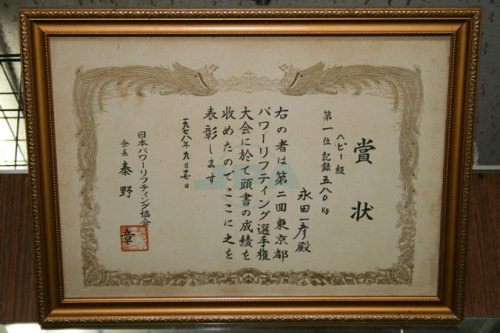 賞状
ヘビー級
第一位 記録五八〇kg
永田一彦殿
右の者は第二回東京都
パワーリフティング選手権
大会に於て頭書の成績を
収めたのでここに之を
表彰します
一九七八年九月
日本パワーリフティング協会
会長 秦野
章